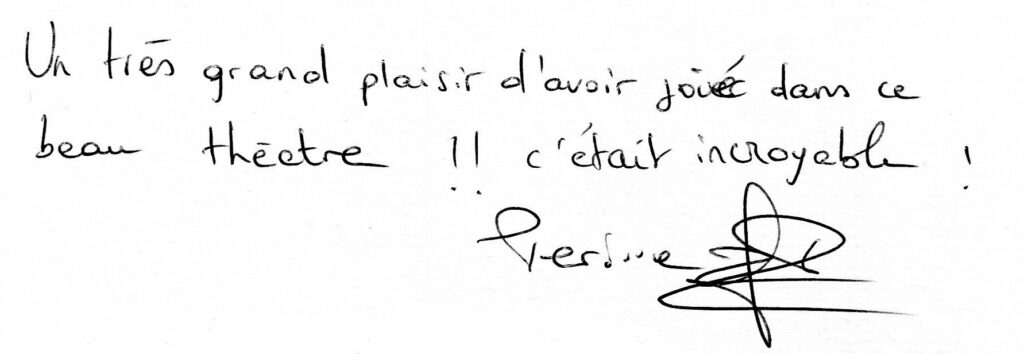 Un très grand plaisir d'avoir joué dans ce
beau théatre !! c'était incroyable !